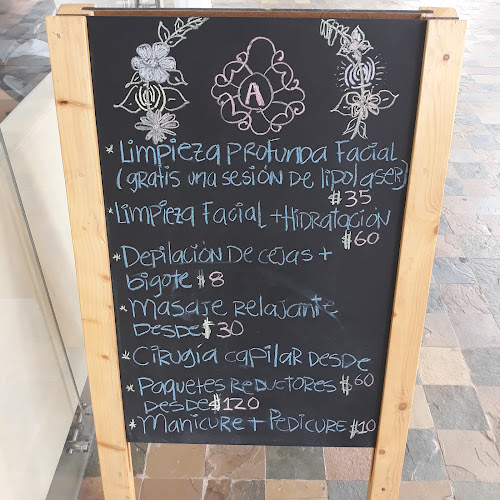 A
* Limpieza Profunda Facial
(gratis una sesión de lipolaser)
$35
* Limpieza Facial + Hidratación
$60
* Depilación De cejas +
bigote $8
* Masaje Relajante
Desde $30
* Cirugía capilar desde
$60
* Paquetes Reductores
desde $120
* Manicure + Pedicure $10